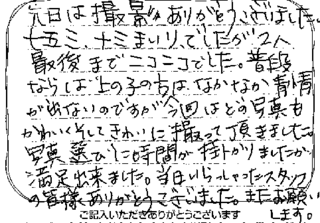 先日は撮影ありがとうございました。
七五三、十三まいりでしたが2人
最後までニコニコでした。普段
ならば上の子の方はなかなか表情
が出ないのですが今回はどの写真も
かわいくそしてきれいに撮って頂きました。
写真選びに時間が掛かりましたが
満足出来ました。当日いらっしゃったスタッフ
の皆様ありがとうございました。またお願い
します。
ご記入いただきありがとうございます